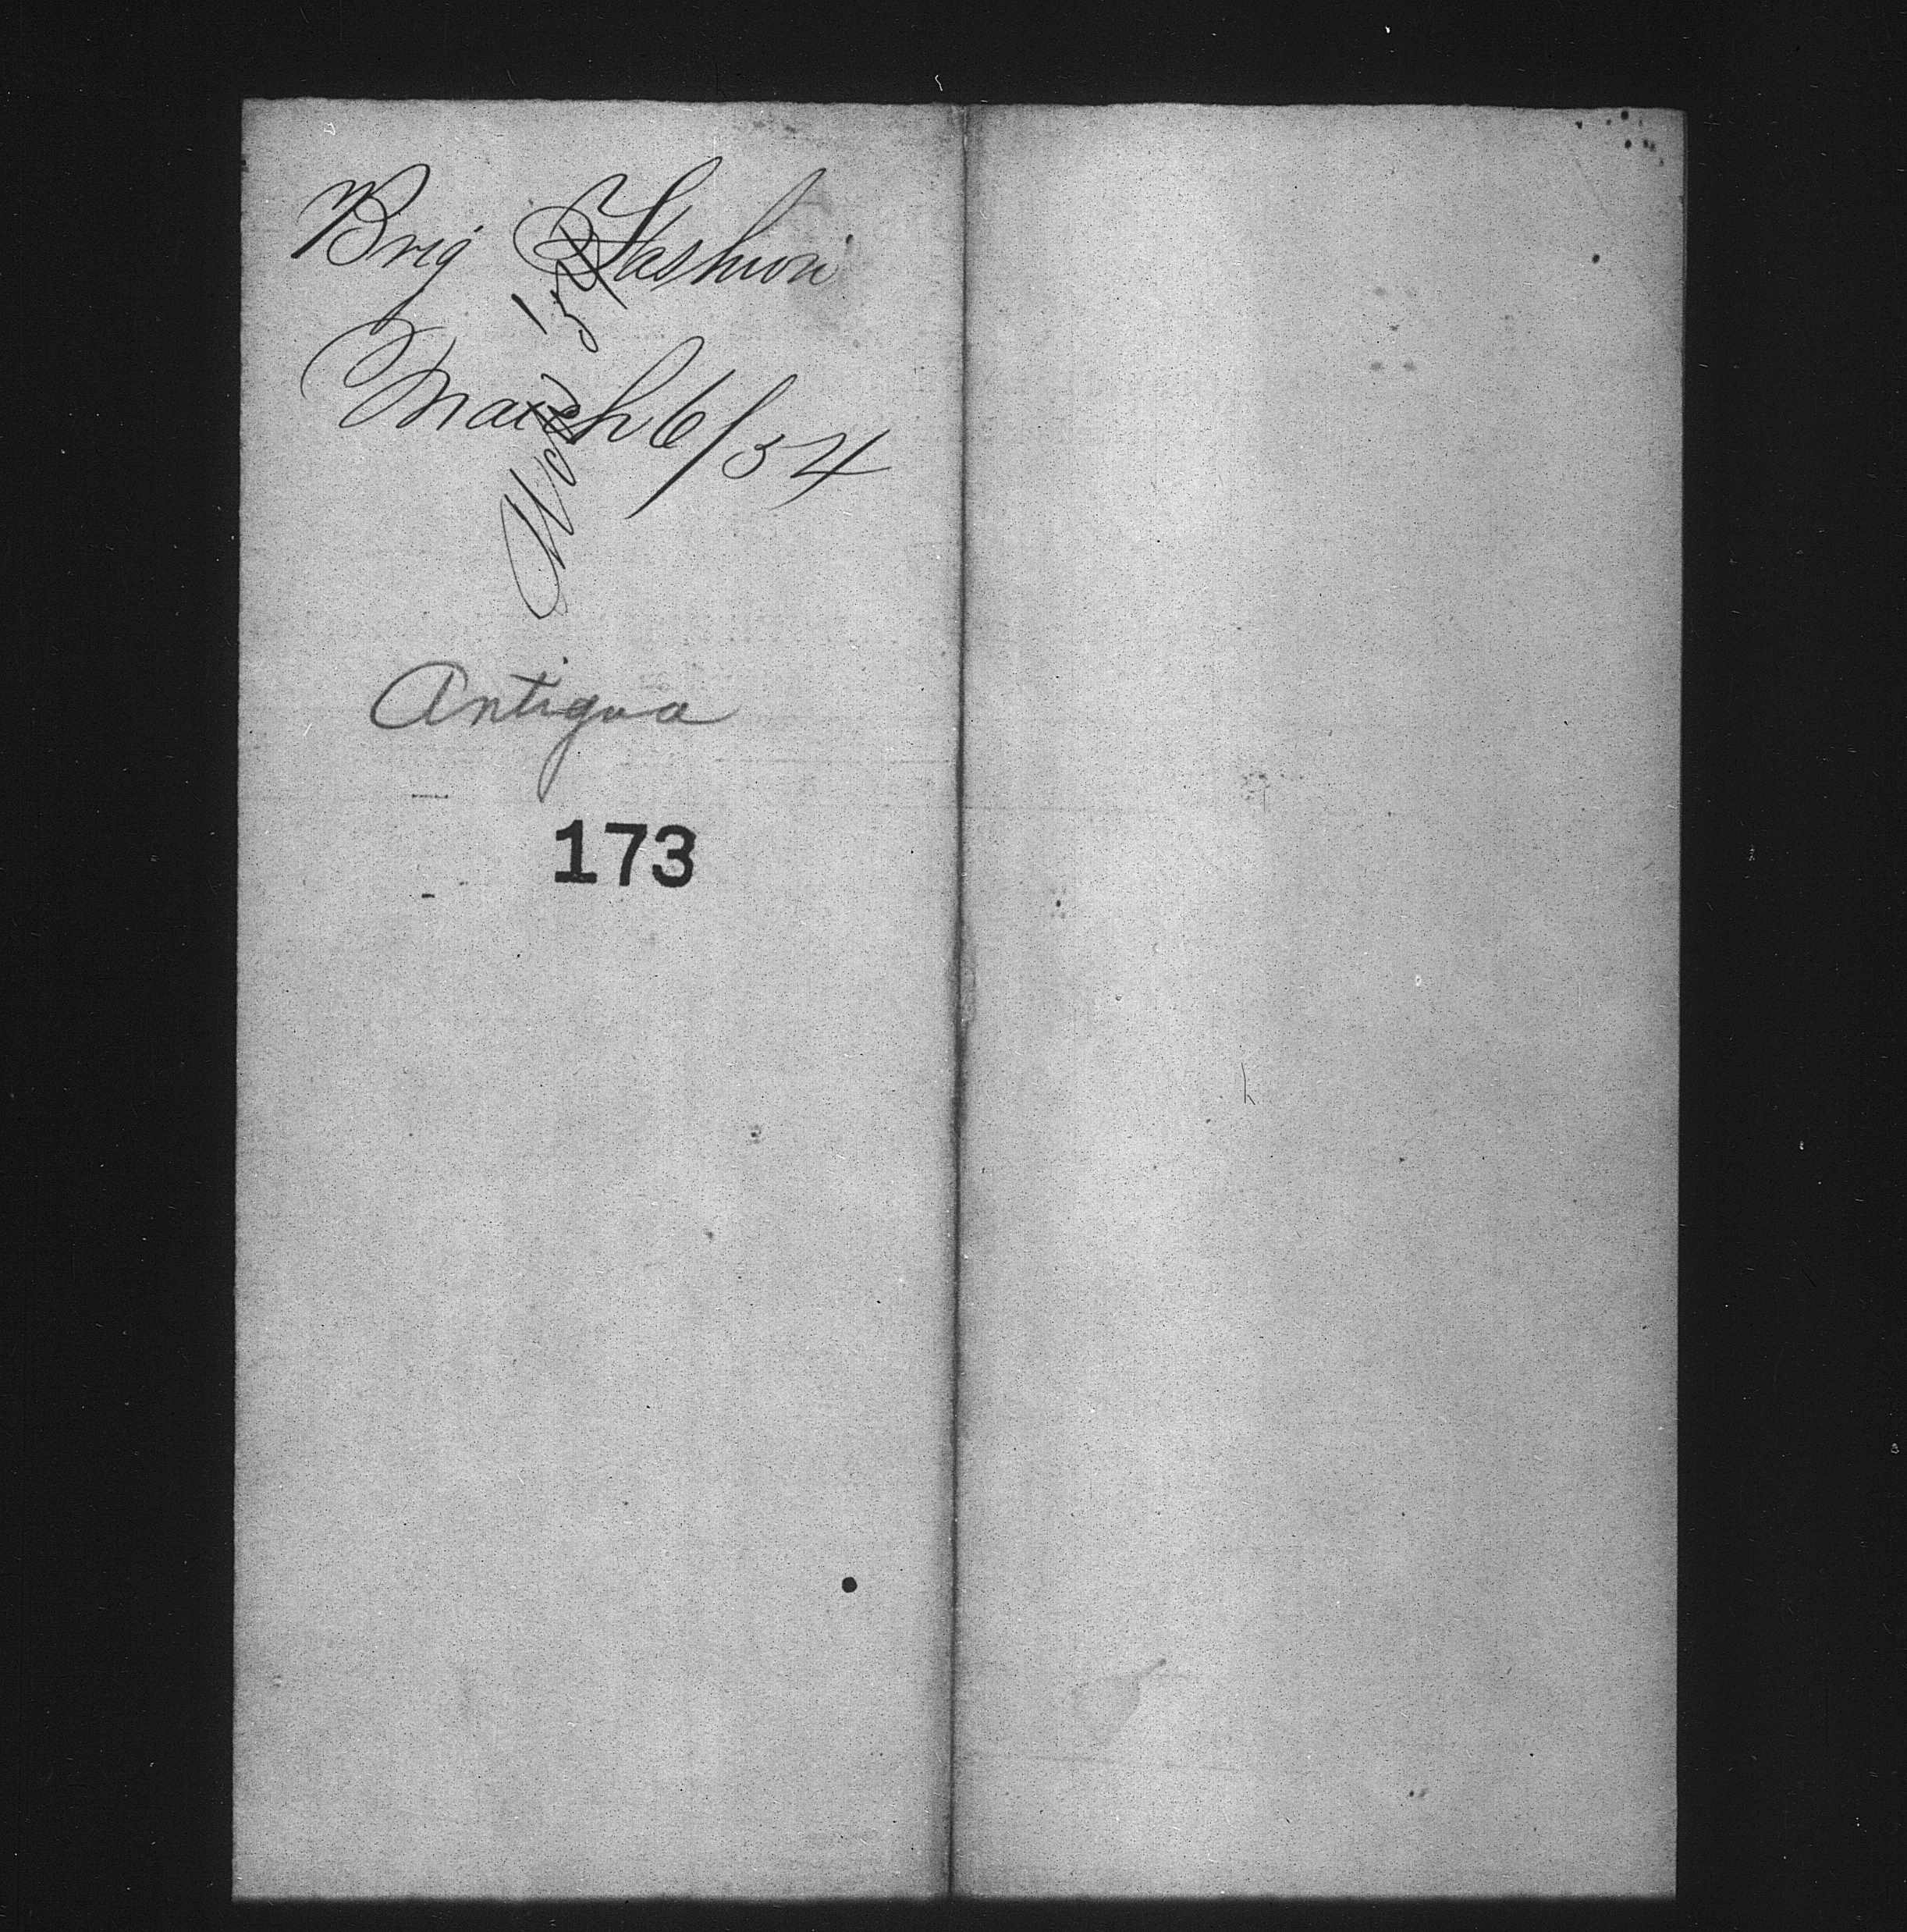 Brig Fashion
March 6/34
Antigua
173